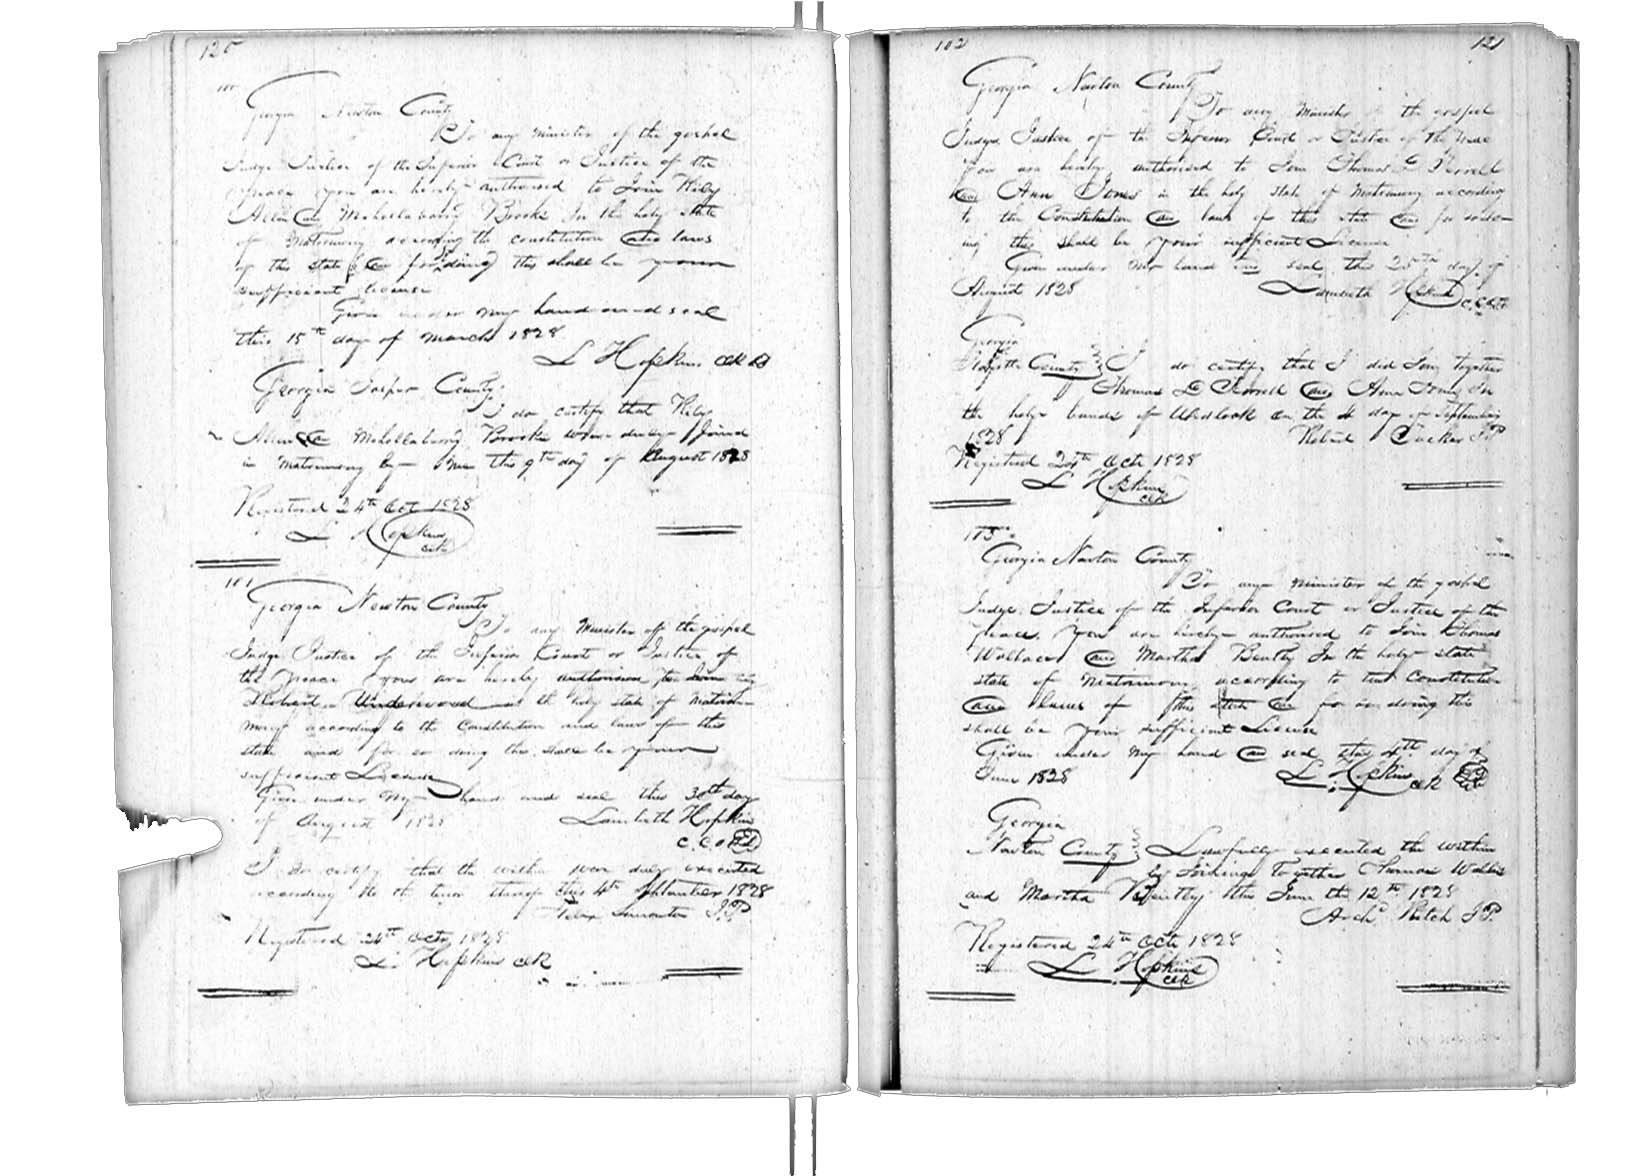 120
100
Georgia Newton County
To any Minister of the gospel
Judge Justice of the Inferior Court or Justice of the
peace you are hereby authorised to Join Rily
Allen and Mehollabary Brooks In the holy state
of Matrimony according the constitution and laws
of this state and for so doing this shall be your
sufficient license
Given under my hand and seal
this 15th day of March 1828
L Hopkins Clk
Georgia Jasper County
I do certify that Rily
Allen and Mehollabary Brooks were duly Joined
in Matrimony by me this 9th day of August 1828
Registered 24th Oct 1828
L Hopkins
Clk
101
Georgia Newton County
To any Minister of the gospel
Judge Justice of the Inferior Court or Justice of
the Peace you are hereby authorised to Join
Robert Underwood in the holy state of Matri-
mony according to the Constitution and laws of this
state and for so doing this shall be your
sufficient License
Given under my hand and seal this 30th day
of August 1828 Lambeth Hopkins
C.C.O
I do certify that the within was duly executed
according to the tenor thereof this 4th September 1828
J.P.
Registered 24th Octr 1828
L. Hopkins Clk
102 121
Georgia Newton County
To any Minister of the gospel
Judge Justice of the Inferior Court or Justice of the Peace
You are hereby authorised to Join Thomas G Terrell
and Ann Jones in the holy state of Matrimony according
to the Constitution and laws of this state and for so do-
ing this shall be your sufficient License
Given under my hand and seal this 25th day of
August 1828 Lambeth Hopkins C.C.O
Georgia
Fayette County I do certify that I did Join together
Thomas G Terrell and Ann Jones In
the holy bands of Wedlock on the 4 day of September
1828 Robert Tucker J.P
Registered 24th Octr 1828
L Hopkins
Clk
103
Georgia Newton County
To any Minister of the gospel
Judge, Justice of the Inferior Court or Justice of the
peace. You are hereby authorised to Join Thomas
Wallace and Martha Bently In the holy state
state of Matrimony according to the Constitution
and laws of this state and for so doing this
shall be your sufficient License
Given under my hand and seal this 4th day of
June 1828 L. Hopkins Clk
Georgia
Newton County Lawfully executed the within
by Joining Together Thomas Wallis
and Martha Bently this June the 12th 1828
Archd Retch J.P.
Registered 24th Octr 1828
L. Hopkins
Clk